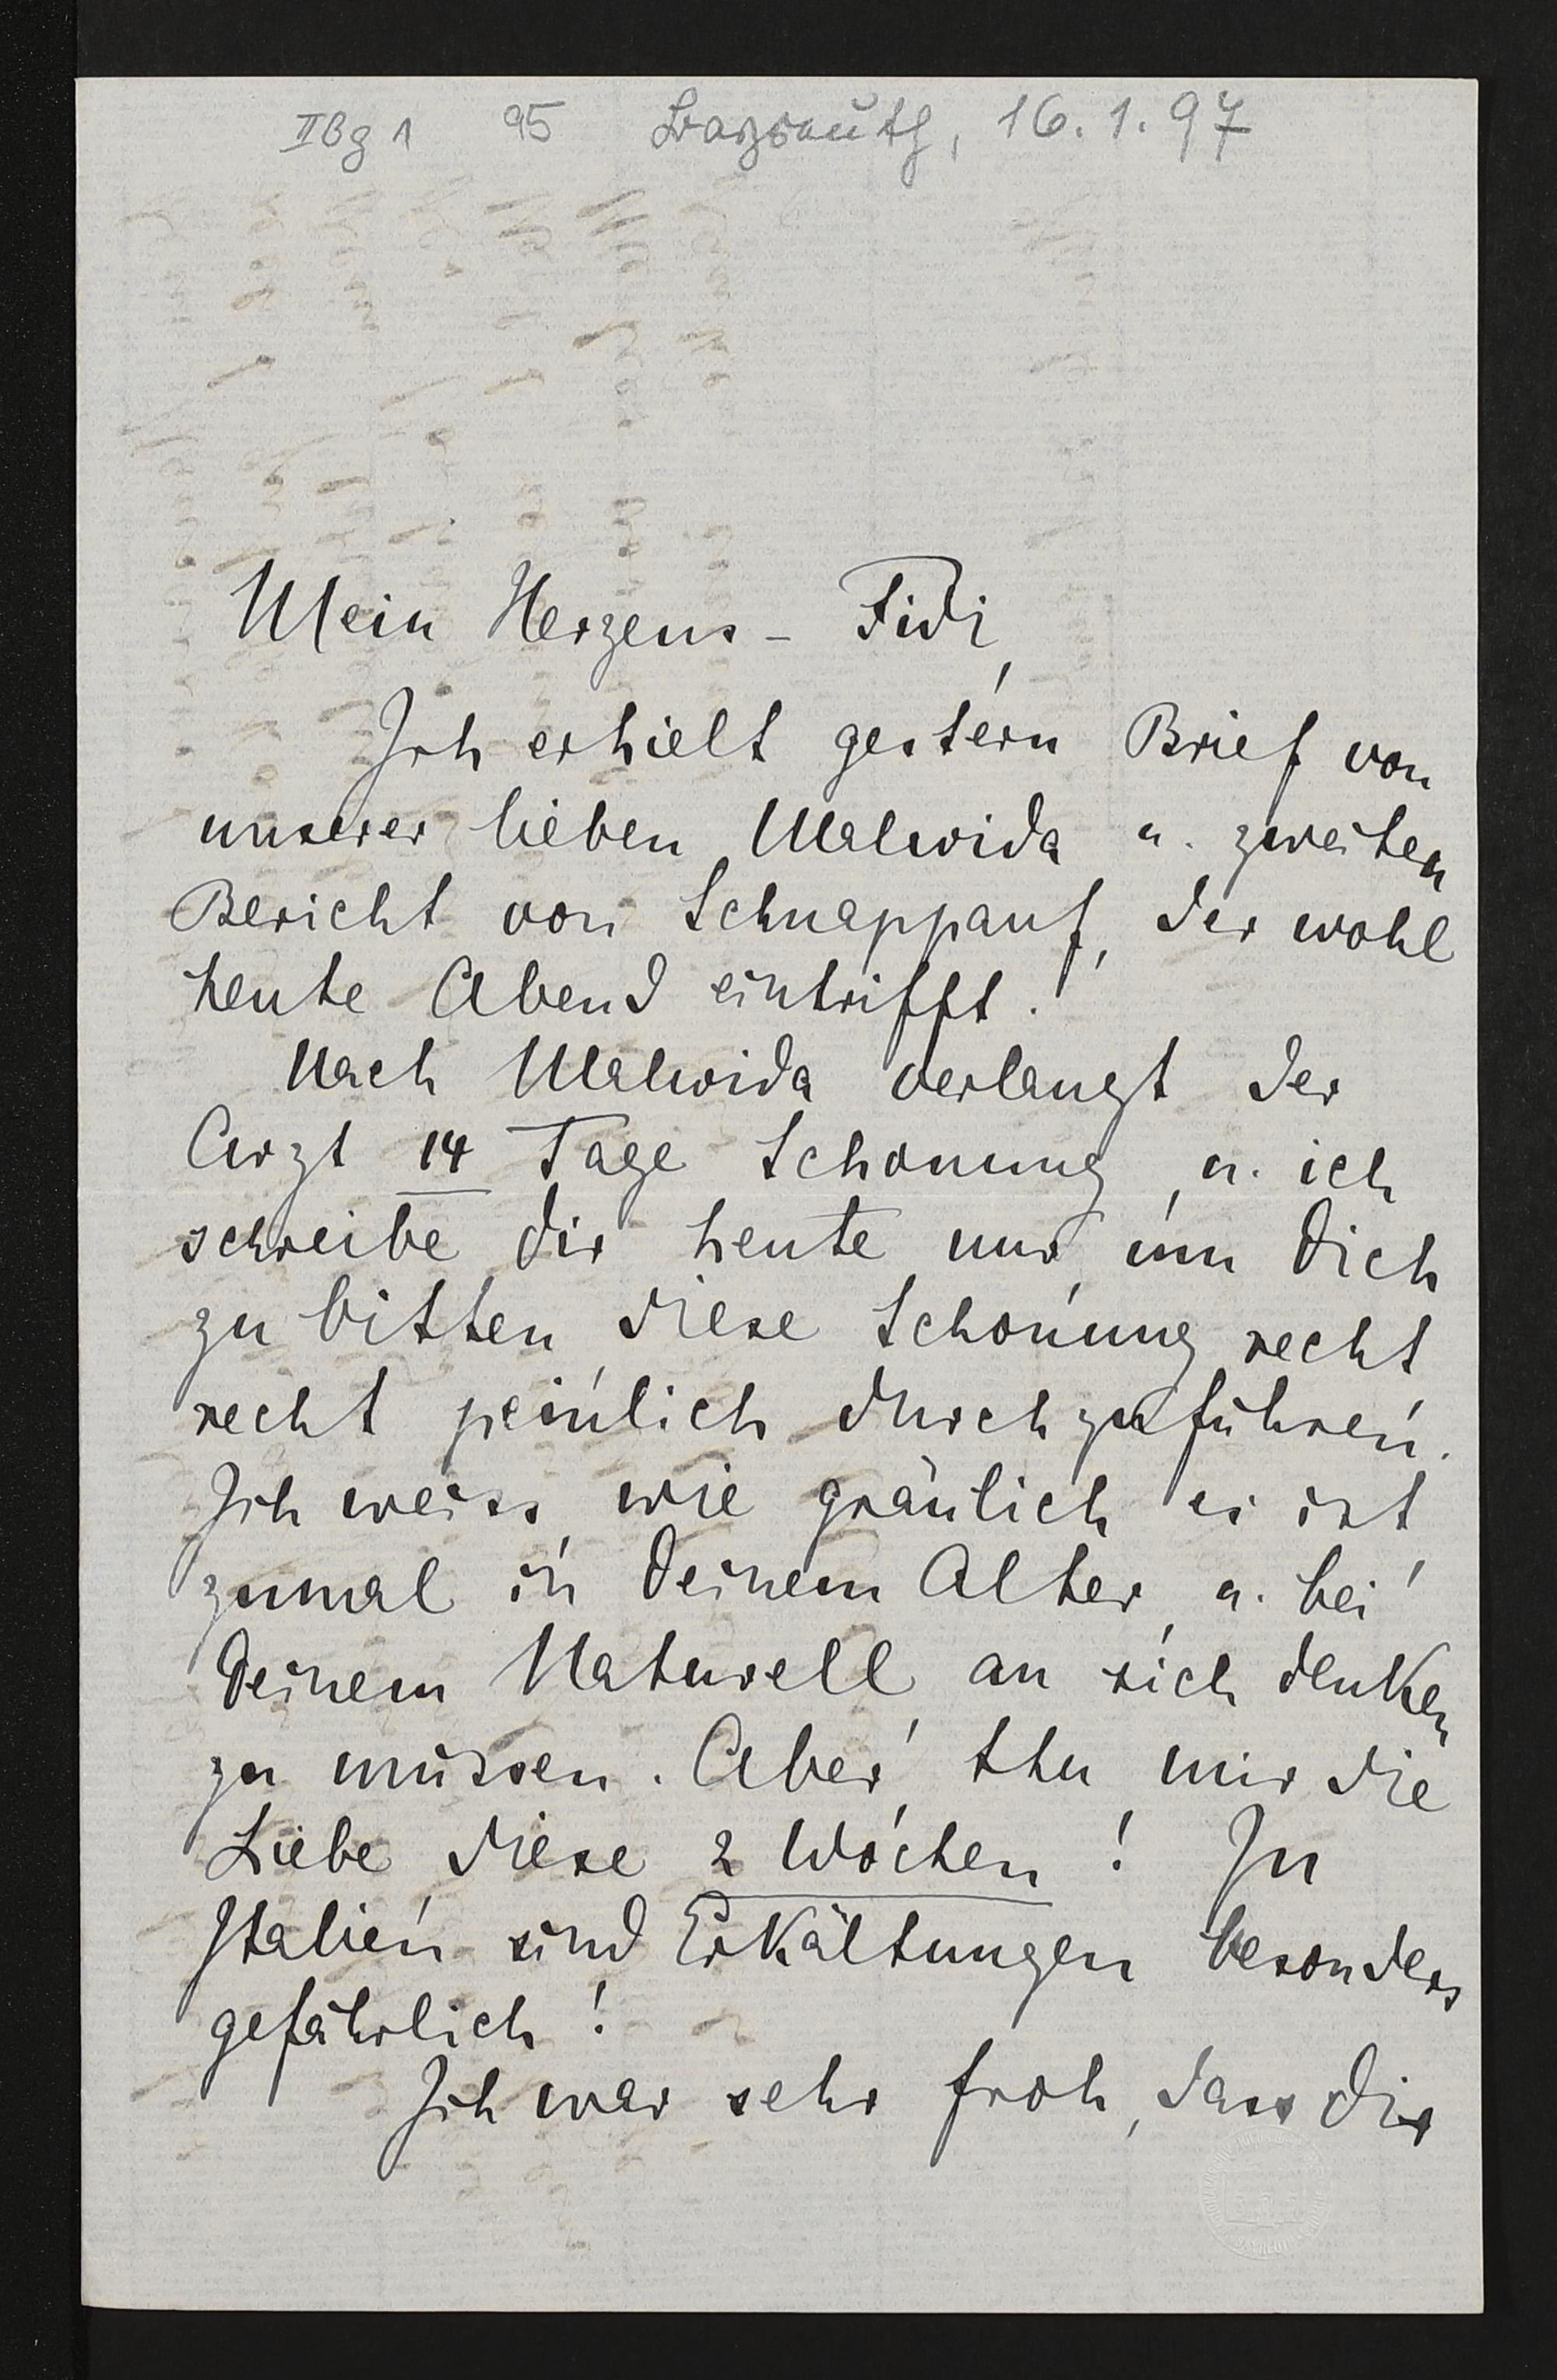 II Bg 1 95 Bayreuth, 16.1.97
Mein Herzens - Fidi,
Ich erhielt gestern Brief von
unserer lieben Malwida u. zweiten
Bericht von Schnappauf, der wohl
heute Abend eintrifft.
Nach Malwida verlangt der
Arzt 14 Tage Schonung, u. ich
schreibe dir heute nur, um Dich
zu bitten, diese Schonung recht
recht peinlich durchzuführen.
Ich weiss, wie gräulich es ist,
zumal in Deinem Alter, u. bei
Deinem Naturell, an sich denken
zu müssen. Aber, thu mir die
Liebe, diese 2 Wochen! In
Italien sind Erkältungen besonders
gefährlich!
Ich war sehr froh, dass Dir